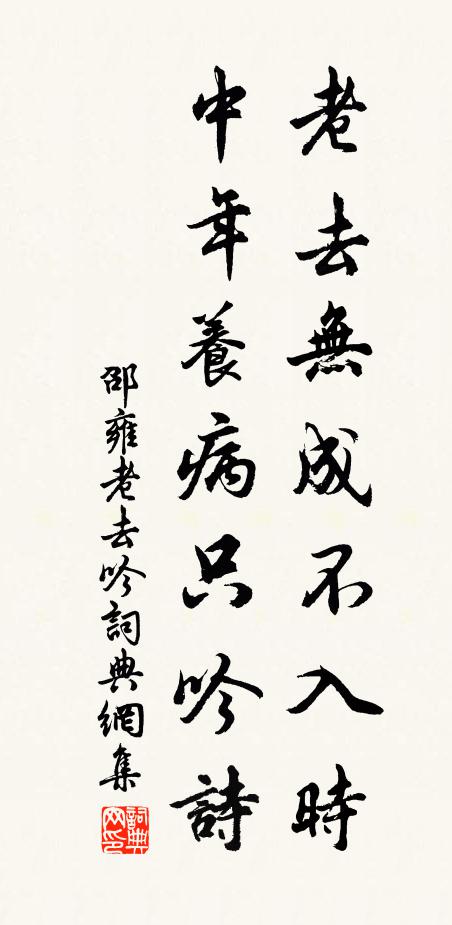 老去無成不入時
中年養病只吟詩
邵雍老去吟詞典網集
詞典网印